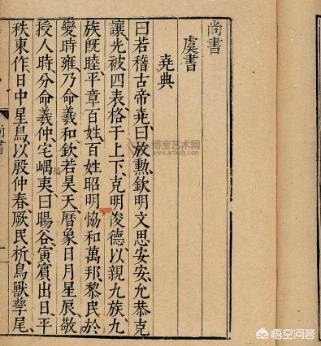 尚書
虞書
堯典
曰若稽古帝堯曰放勳欽明文思安安允恭克
讓光被四表格于上下克明俊德以親九族九
族旣睦平章百姓百姓昭明協和萬邦黎民於
變時雍乃命羲和欽若昊天曆象日月星辰敬
授人時分命羲仲宅嵎夷曰暘谷寅賓出日平
秩東作日中星鳥以殷仲春厥民析鳥獸孳尾
博宝艺术网
悟空问答